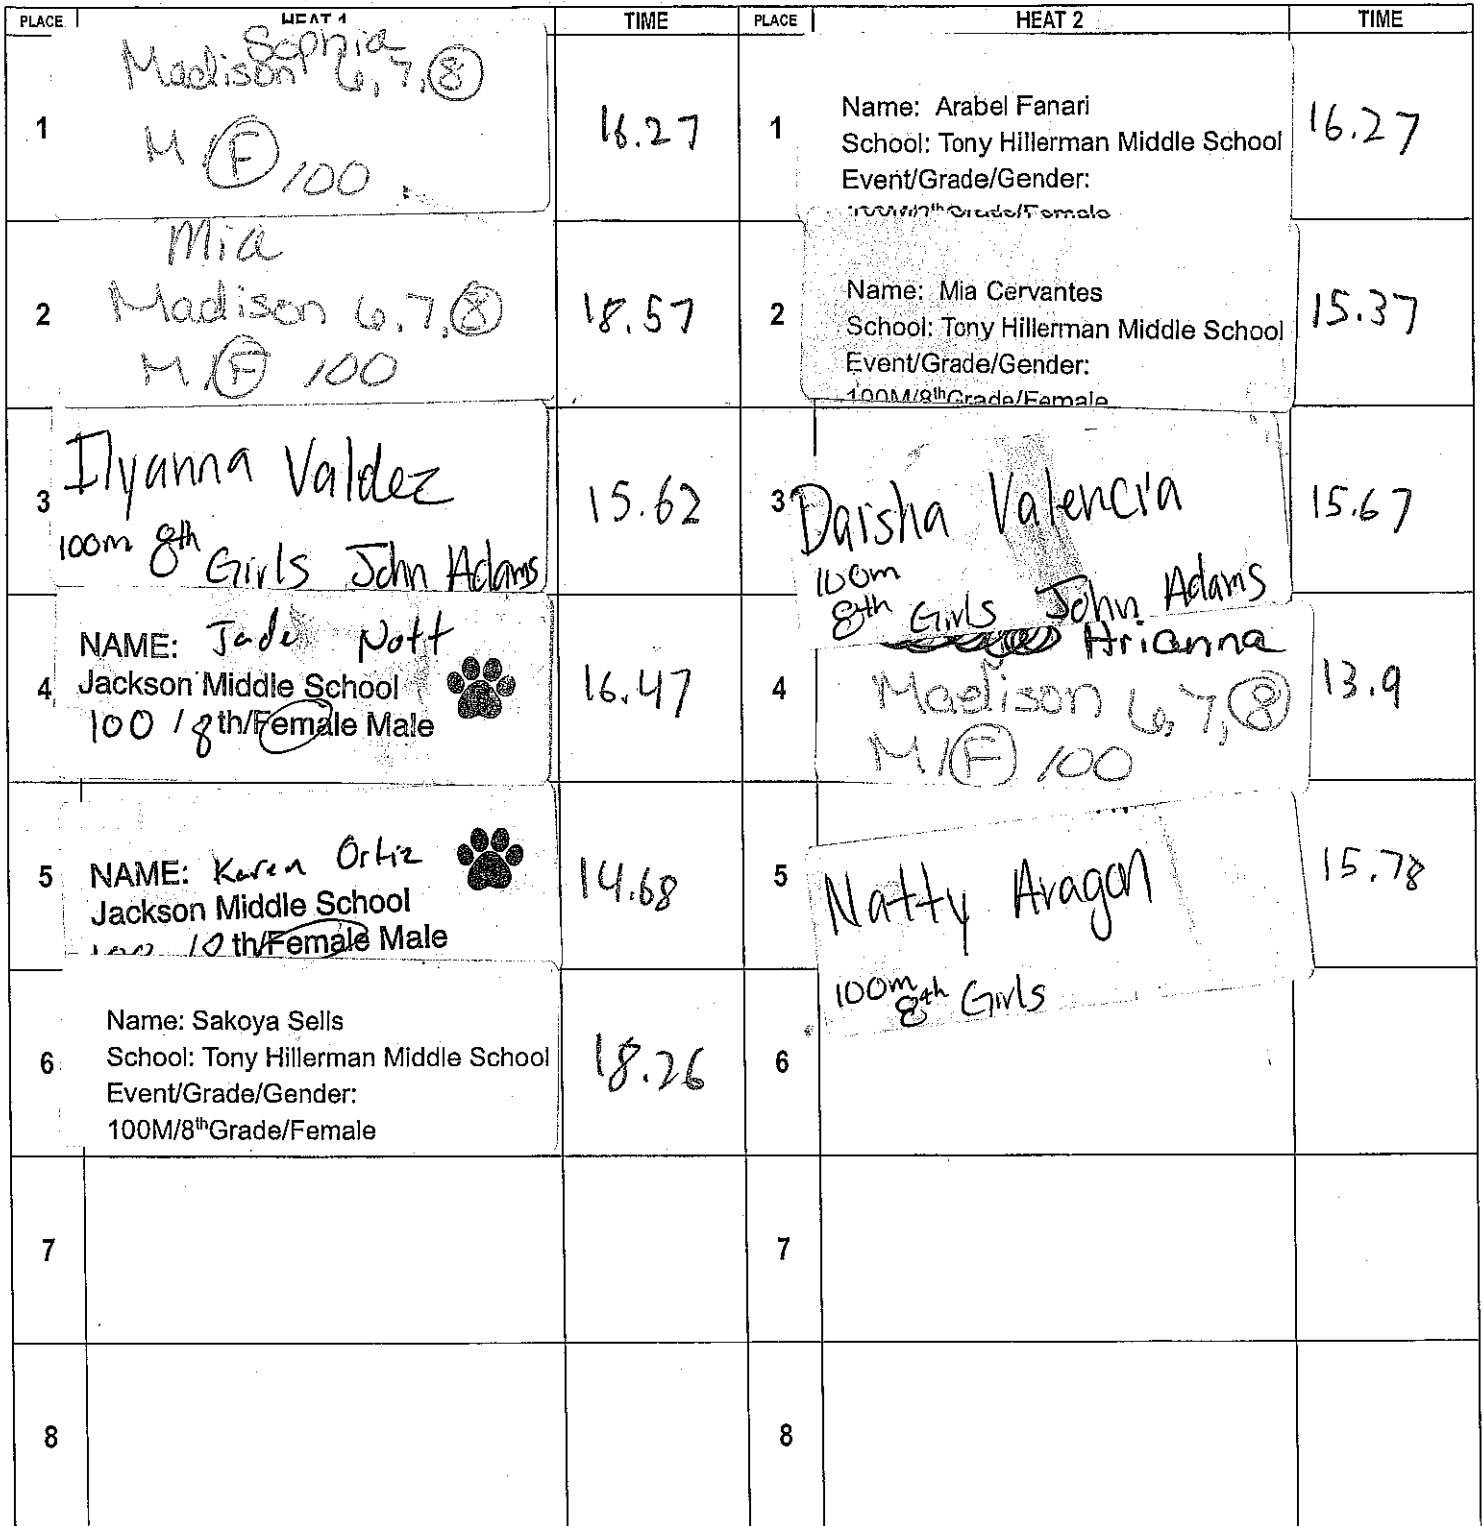 PLACE HEAT 1 TIME PLACE HEAT 2 TIME
1
Sophia
Madison 6, 7, 8
M F 100
16.27
1
Name: Arabel Fanari
School: Tony Hillerman Middle School
Event/Grade/Gender:
Grade/Female
16.27
2
Mia
Madison 6, 7, 8
M / F 100
18.57
2
Name: Mia Cervantes
School: Tony Hillerman Middle School
Event/Grade/Gender:
100M/8thGrade/Female
15.37
3
Ilyanna Valdez
100m 8th Girls John Adams
15.62
3
Daisha Valencia
100m
8th Girls John Adams
15.67
4
NAME: Jade Nott
Jackson Middle School
100 / 8th/Female Male
16.47
4
Arianna
Madison 6, 7, 8
M / F / 100
13.9
5
NAME: Karen Ortiz
Jackson Middle School
th/Female Male
14.68
5
Natty Aragon
100m 8th Girls
15.78
6
Name: Sakoya Sells
School: Tony Hillerman Middle School
Event/Grade/Gender:
100M/8thGrade/Female
18.26
6
7
7
8
8